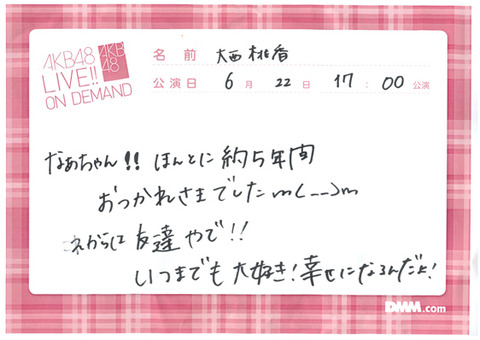 AKB48
LIVE!!
ON DEMAND
AKB
48
名前 大西桃香
公演日 6月22日 17:00 公演
なぁちゃん!! ほんとに約5年間
おつかれさまでしたm(__)m
これからは友達やで!!
いつまでも大好き!幸せになるんだよ!
DMM.com